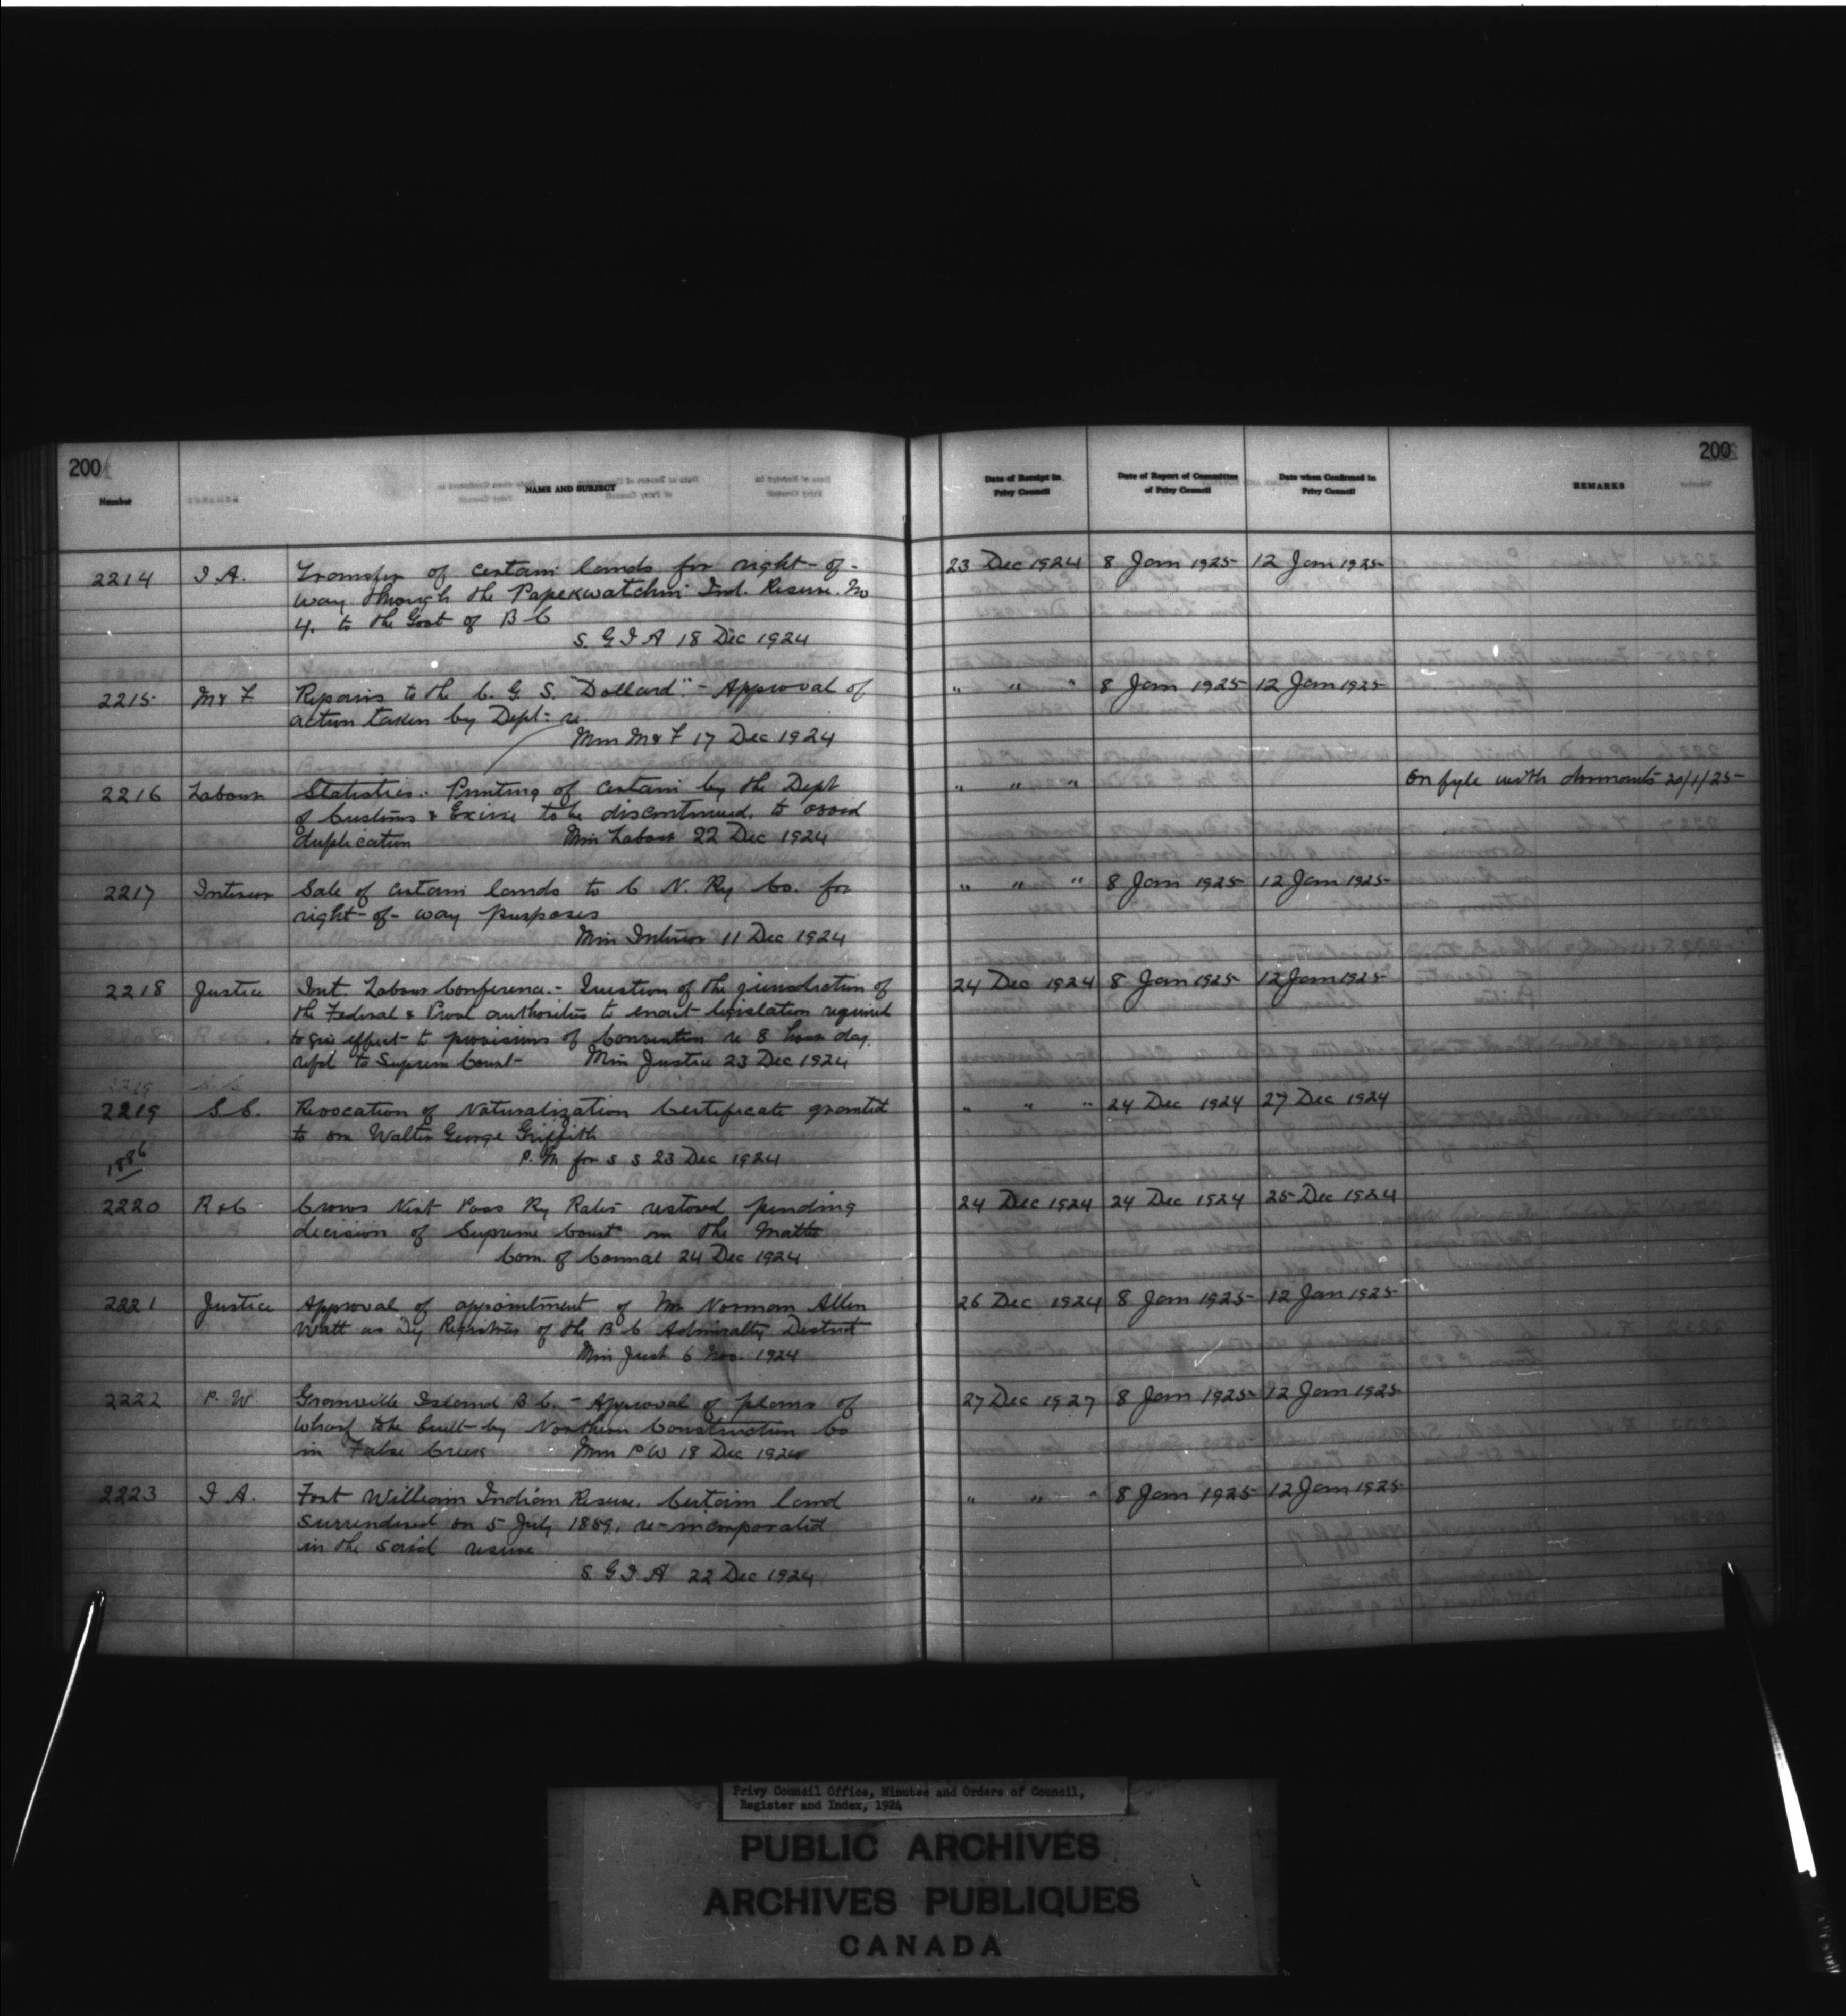 200 200
Number NAME AND SUBJECT Date of Receipt in Privy Council Date of Report of Committee of Privy Council Date when Confirmed in Privy Council REMARKS
2214 I.A. Transfer of certain lands for right-of- 23 Dec 1924 8 Jan 1925 12 Jan 1925
way through the Papekwatchin Ind. Reserve. No
4. to the Govt of B C
S. G I A 18 Dec 1924
2215 M & F Repairs to the C. G S. "Dollard" - Approval of " " " 8 Jan 1925 12 Jan 1925
action taken by Dept: re.
Min M & F 17 Dec 1924
2216 Labour Statistics. Printing of certain by the Dept " " " On fyle with dormants 20/1/25
of Customs & Excise to be discontinued. to avoid
duplication Min Labour 22 Dec 1924
2217 Interior Sale of certain lands to C N. Ry Co. for " " " 8 Jan 1925 12 Jan 1925
right-of-way purposes
Min Interior 11 Dec 1924
2218 Justice Int. Labour Conference. - Question of the jurisdiction of 24 Dec 1924 8 Jan 1925 12 Jan 1925
the Federal & Provl authorities to enact legislation required
to give effect to provisions of Convention re 8 hour day.
refd to Supreme Court Min Justice 23 Dec 1924
2219 S.S. Revocation of Naturalization Certificate granted " " " 24 Dec 1924 27 Dec 1924
to one Walter George Griffith
1886 P. M for S S 23 Dec 1924
2220 R & C Crows Nest Pass Ry Rates restored pending 24 Dec 1924 24 Dec 1924 25 Dec 1924
decision of Supreme Court in the Matter
Com. of Council 24 Dec 1924
2221 Justice Approval of appointment of Mr Norman Allen 26 Dec 1924 8 Jan 1925 12 Jan 1925
Watt as Dy Registrar of the B C Admiralty District
Min Just 6 Nov. 1924
2222 P. W. Granville Island B C. - Approval of plans of 27 Dec 1927 8 Jan 1925 12 Jan 1925
wharf to be built by Northern Construction Co
in False Creek Min P W 18 Dec 1924
2223 I A. Fort William Indian Reserve. Certain land " " " 8 Jan 1925 12 Jan 1925
surrendered on 5 July 1889. re-incorporated
in the said reserve
S. G I A 22 Dec 1924
Privy Council Office, Minutes and Orders of Council,
Register and Index, 1924
PUBLIC ARCHIVES
ARCHIVES PUBLIQUES
CANADA